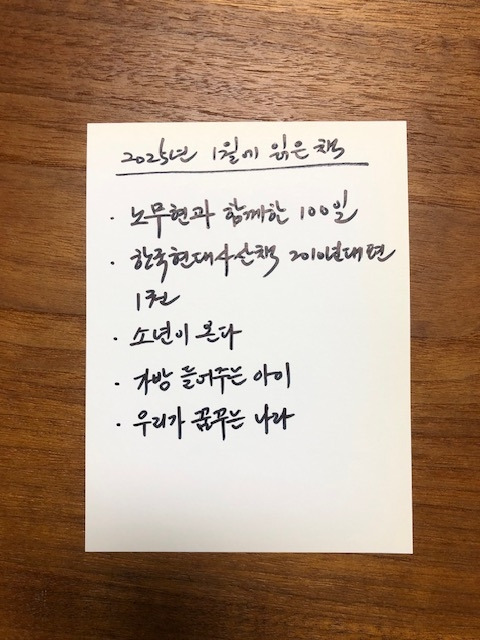 2025년 1월에 읽은 책
· 노무현과 함께한 100일
· 한국현대사산책 2010년대편
1권
· 소년이 온다
· 가방 들어주는 아이
· 우리가 꿈꾸는 나라